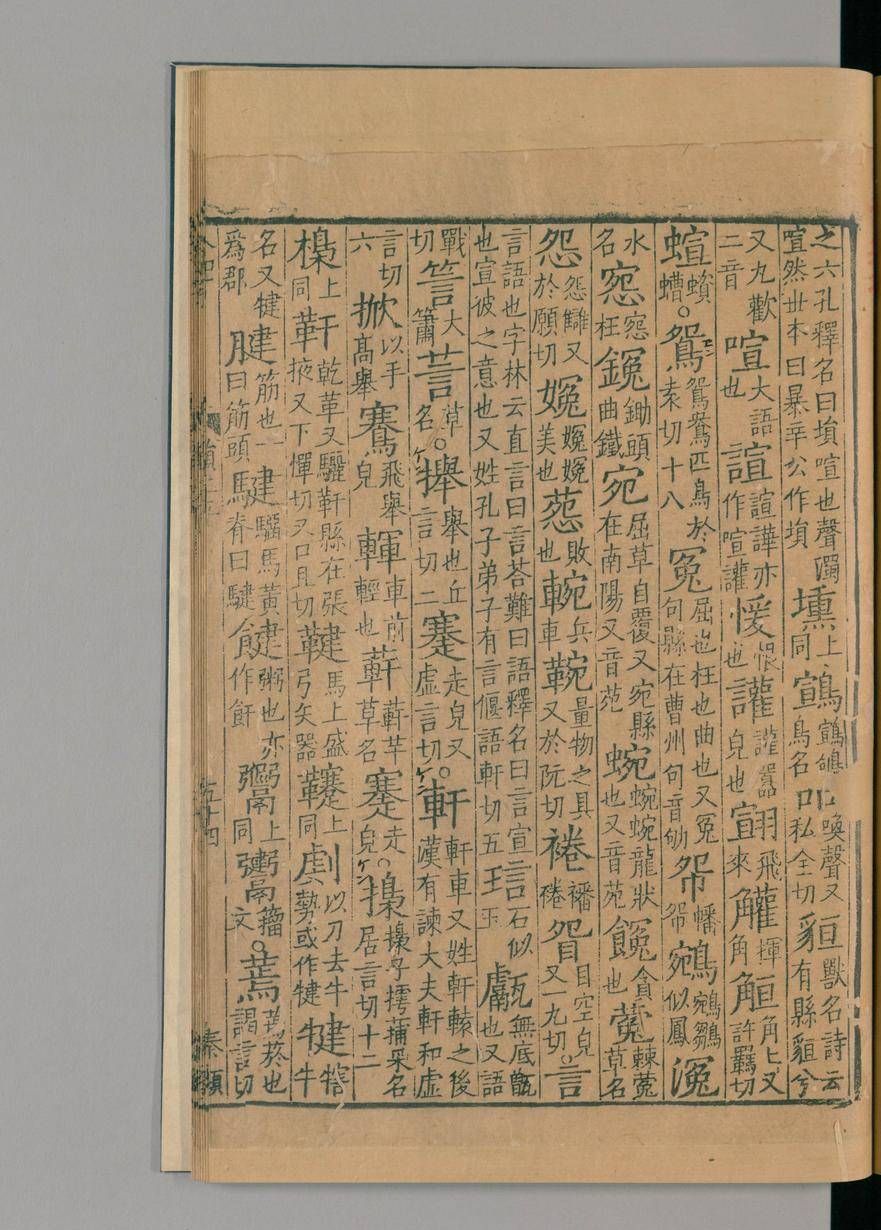 之六孔釋名曰塤喧也聲濁喧然丗本曰暴辛公作塤 壎上同 鳥名 吅喚聲又私全切 貆獸名詩云有縣貆兮
又九歡二音 喧大語也 諠諠譁亦作喧讙 愋恨也 讙讙嚻皃也 翧飛來 䚭揮角 䚙角匕又許羈切
蝖蠀螬○鴛鴛鴦匹鳥於袁切十八 冤屈也枉也曲也又冤句縣在曹州句音劬 㠾幡㠾 鵷鵷鶵似鳳
水名 惌惌枉 鋤頭曲鐵 宛屈草自覆又宛縣在南陽又音苑 蜿蜿蜿龍狀也又音苑 貪也 蒬棘蒬草名
怨怨讎又於願切 美也 葾敗也 䡝兵車 量物之具又於阮切 裷襎裷 眢目空皃又一丸切○言
言語也字林云直言曰言荅難曰語釋名曰言宣也宣彼之意也又姓孔子弟子有言偃語軒切五 琂石似玉 甗無底甑也又語
戰切 大簫 草名○攑舉也丘言切二 走皃又虛言切○軒軒車又姓軒轅之後漢有諫大夫軒和虛
言切六 掀以手高舉 騫飛舉皃 車前輕也 蓒芋草名 走皃○居言切十二 子樗蒱采名
上同 靬乾革又驪靬縣在張掖又下憚切又口旦切 鞬馬上盛弓矢器 上同 以刀去牛勢或作犍 犍犗牛
名又犍爲郡 腱筋也一曰筋頭 騝騮馬黃脊曰騝 粥也亦作飦 上同 籀文○蔫蔫菸也謁言切
五十四
秦顯